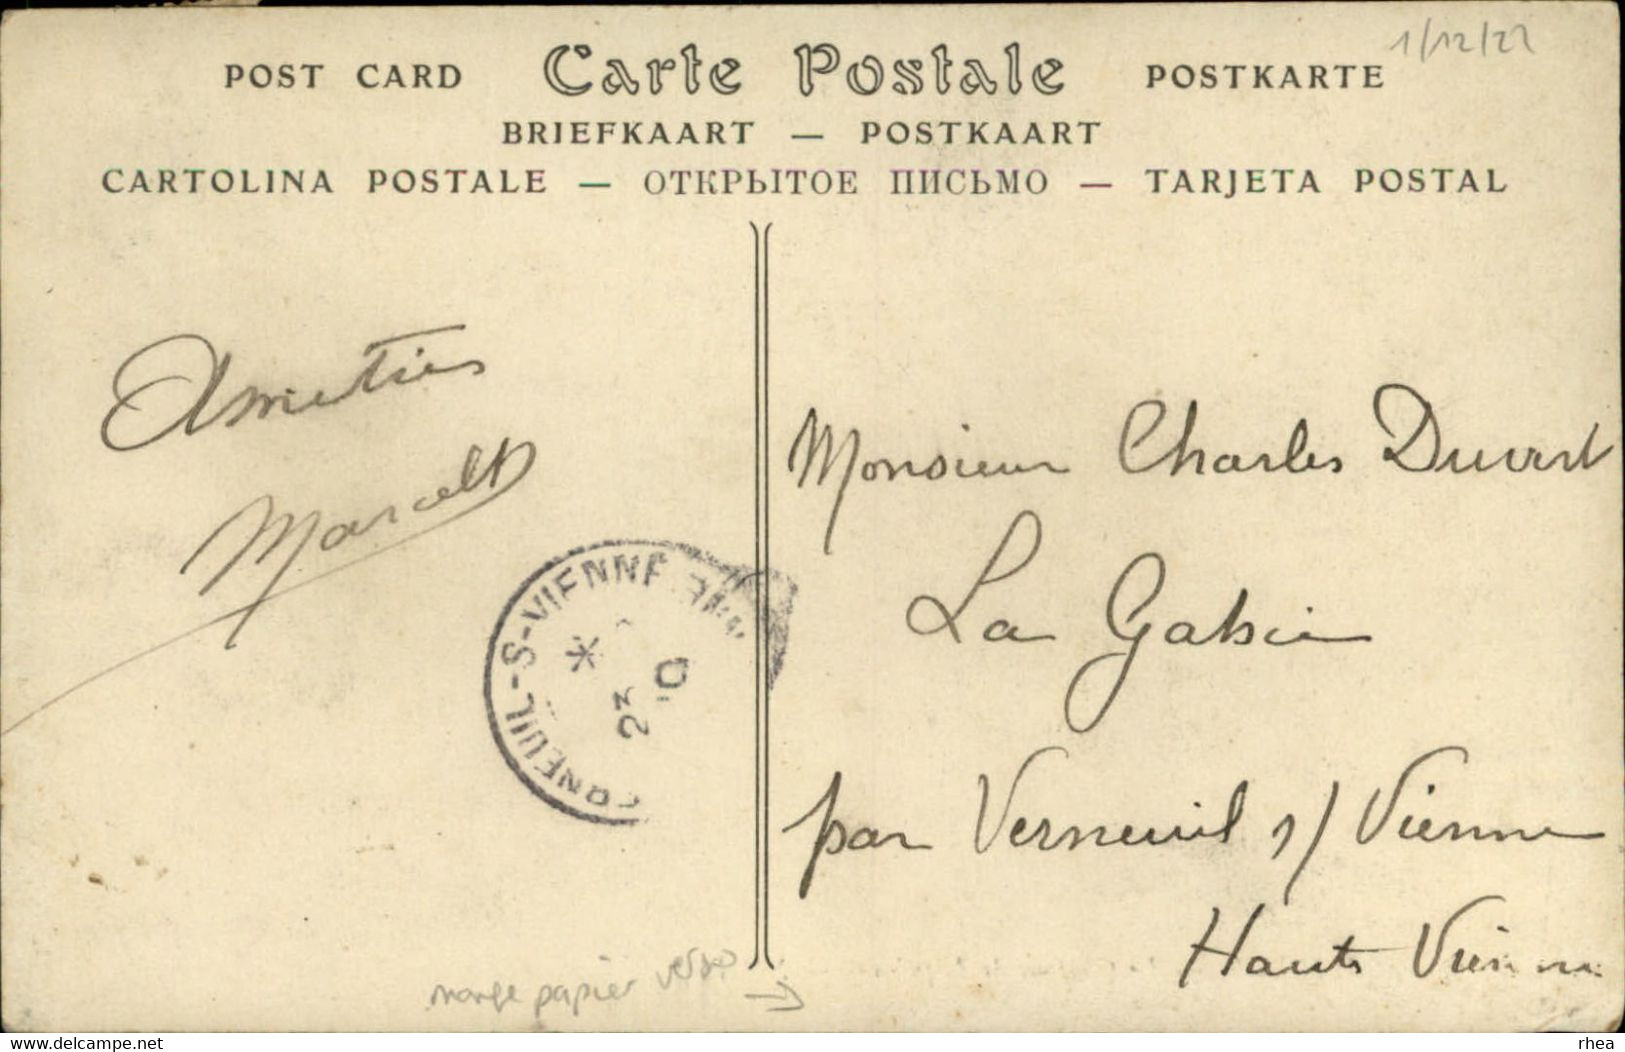 1/12/22
POST CARD Carte Postale POSTKARTE
BRIEFKAART — POSTKAART
CARTOLINA POSTALE — ОТКРЫТОЕ ПИСЬМО — TARJETA POSTAL
Amitiés
Marcel
VERNEUIL-S-VIENNE
*
23
10
Monsieur Charles Duvert
La
par Verneuil s/ Vienne
Haute Vienne
manque papier verso →
www.delcampe.net
rhea